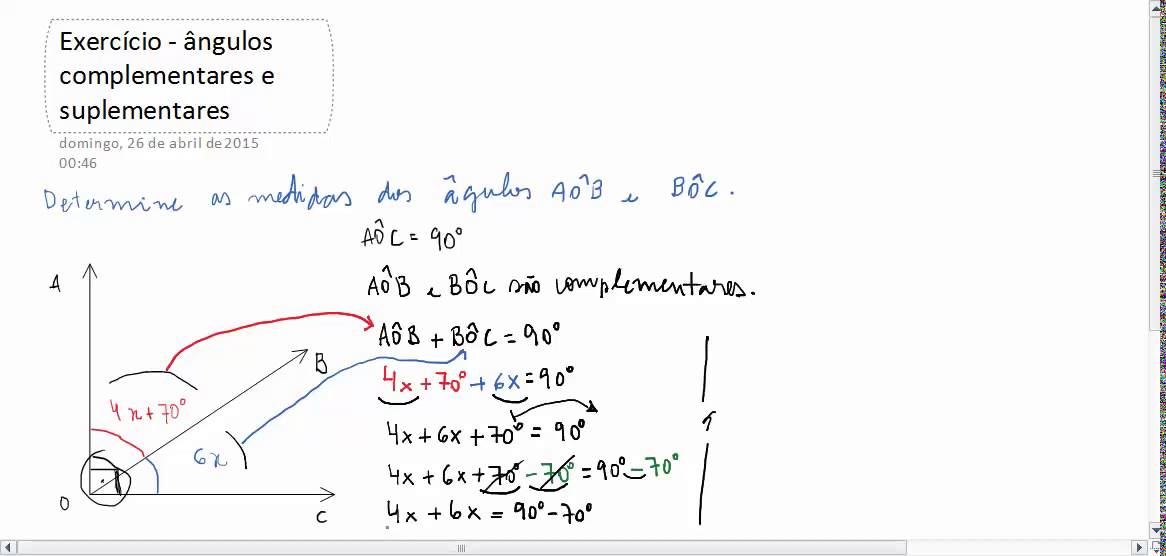 Exercício - ângulos
complementares e
suplementares
domingo, 26 de abril de 2015
00:46
Determine as medidas dos âgulos AÔB e BÔC.
AÔC = 90°
AÔB e BÔC são complementares.
A
AÔB + BÔC = 90°
B
4x + 70° + 6x = 90°
4x + 70°
4x + 6x + 70° = 90°
6x
4x + 6x + 70° - 70° = 90° - 70°
O
C
4x + 6x = 90° - 70°